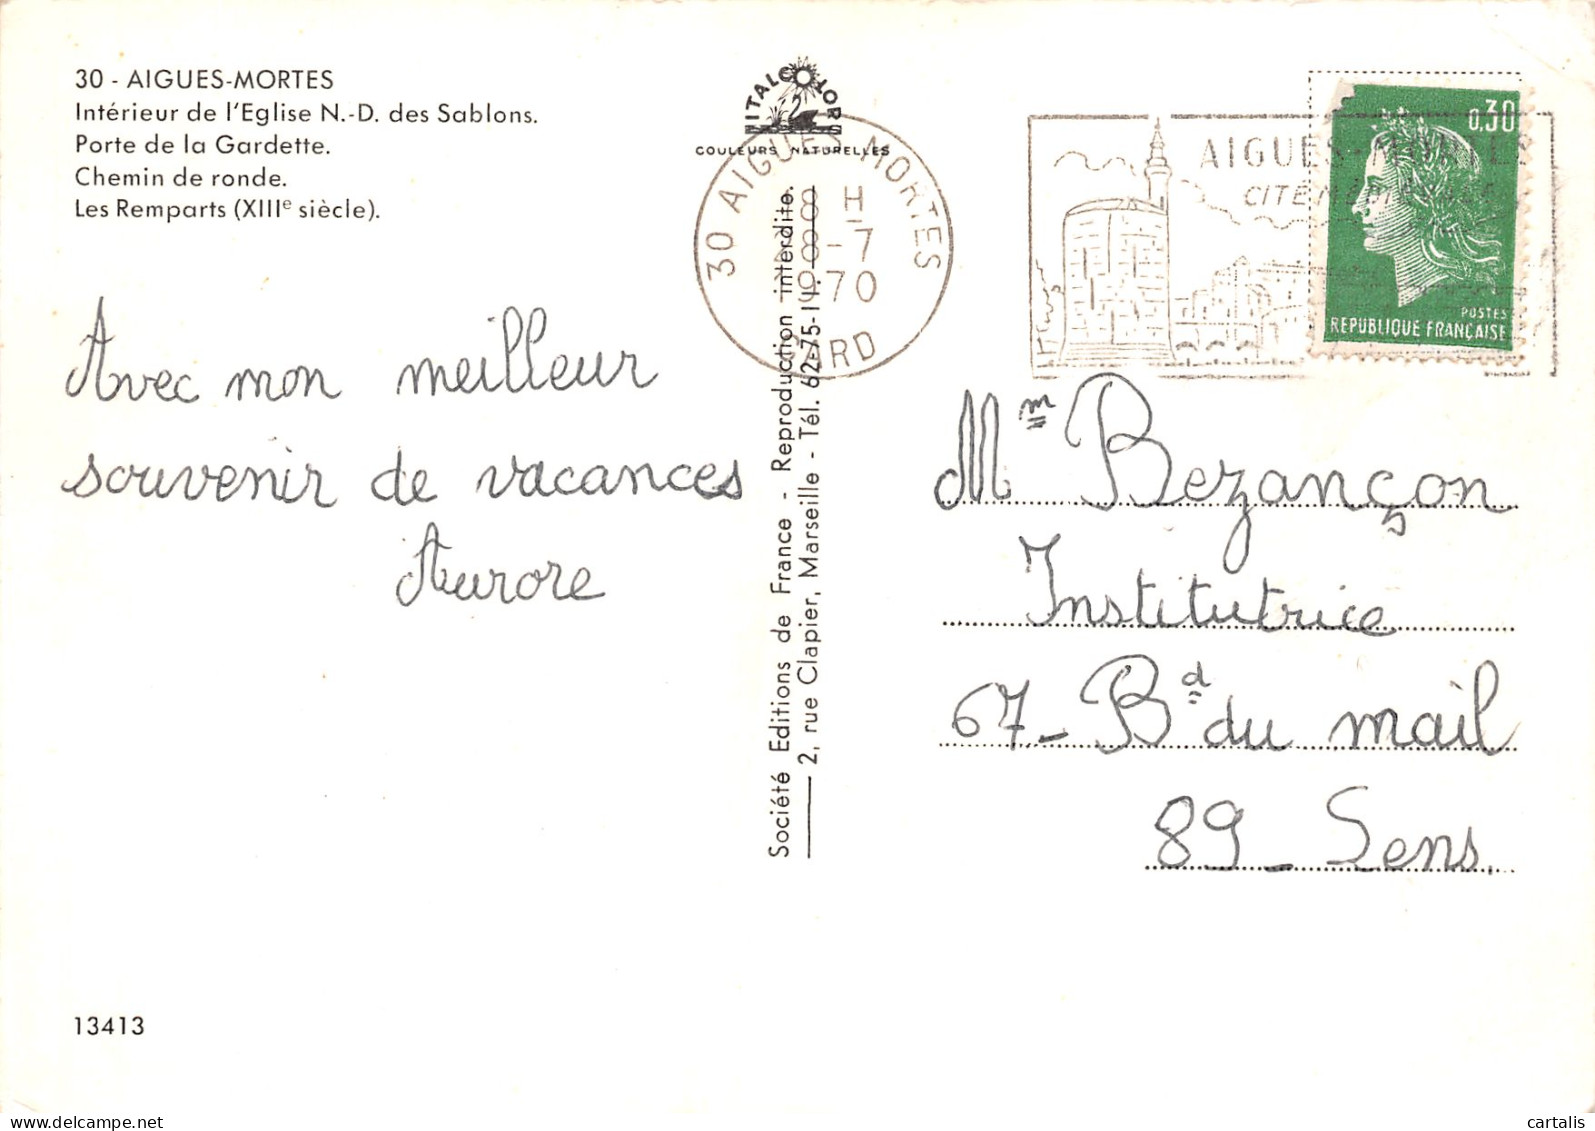 30 - AIGUES-MORTES
Intérieur de l'Eglise N.-D. des Sablons.
Porte de la Gardette.
Chemin de ronde.
Les Remparts (XIIIe siècle).
Avec mon meilleur
souvenir de vacances
Aurore
13413
COULEURS NATURELLES
30 AIGUES-MORTES
18 H
8-7
1970
GARD
Société Editions de France - Reproduction interdite.
2, rue Clapier, Marseille - Tél. 62-75-11.
AIGUES-MORTES
CITE MEDIEVALE
0,30
POSTES
REPUBLIQUE FRANÇAISE
Mme Bezançon
Institutrice
67 - Bd du mail
89 - Sens.
cartalis
www.delcampe.net